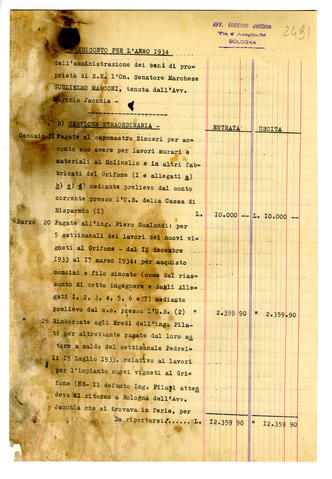 AVV. EUGENIO JACCHIA
Via d'Azeglio,
BOLOGNA
2491
RENDICONTO PER L'ANNO I934
dell'amministrazione dei beni di pro=
prietà di S.E. l'On. Senatore Marchese
GUGLIELMO MARCONI, tenuta dall'Avv.
Eugenio Jacchia -
B) GESTIONE STRAORDINARIA - ENTRATA USCITA
Gennaio 3I Pagate al capomastro Sinceri per ac=
conto suo avere per lavori murari e
materiali al Molinello e in altri fab=
bricati del Grifone (I e allegati a)
b) c) d) mediante prelievo dal conto
corrente presso l'U.B. della Cassa di
Risparmio (I) L. I0.000 -- L. I0.000 --
Marzo 20 Pagate all'ing. Piero Gualandi: per
5 settimanali dei lavori dei nuovi vi=
gneti al Grifone - dal I2 decembre
I933 al I7 marzo I934: per acquisto
concimi e filo zincato (come dal rias=
sunto di detto ingegnere e dagli Alle=
gati I, 2, 3, 4, 5, 6 e 7) mediante
prelievo dal c.c. presso l'U.B. (2) " 2.359 90 " 2.359.90
26 Rimborsate agli Eredi dell'ing. Pila=
ti per altrettante pagate dal loro au
tore a saldo del settimanale Pedrel=
li I5 Luglio I933, relativo ai lavori
per l'impianto nuovi vigneti al Gri=
fone (NB- Il defunto Ing. Pilati atten
deva di ritorno a Bologna dell'Avv.
Jacchia che si trovava in ferie, per
Da riportarsi..... L. I2.359 90 " I2.359 90